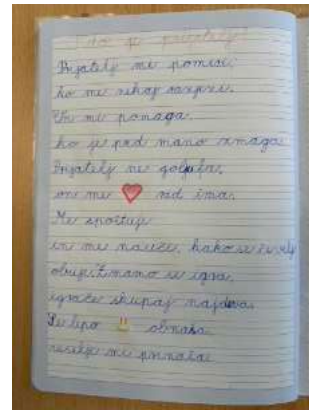 Kdo je prijatelj?
Prijatelj me pomiri,
ko me nekaj razjezi.
On mi pomaga,
ko je pred mano zmaga.
Prijatelj ne goljufa,
on me rad ima.
Me spoštuje
in me nauči, kako se živi
obup. Z mano se igra,
igrače skupaj najdeva.
Se lepo obnaša
veselje mi prinaša.